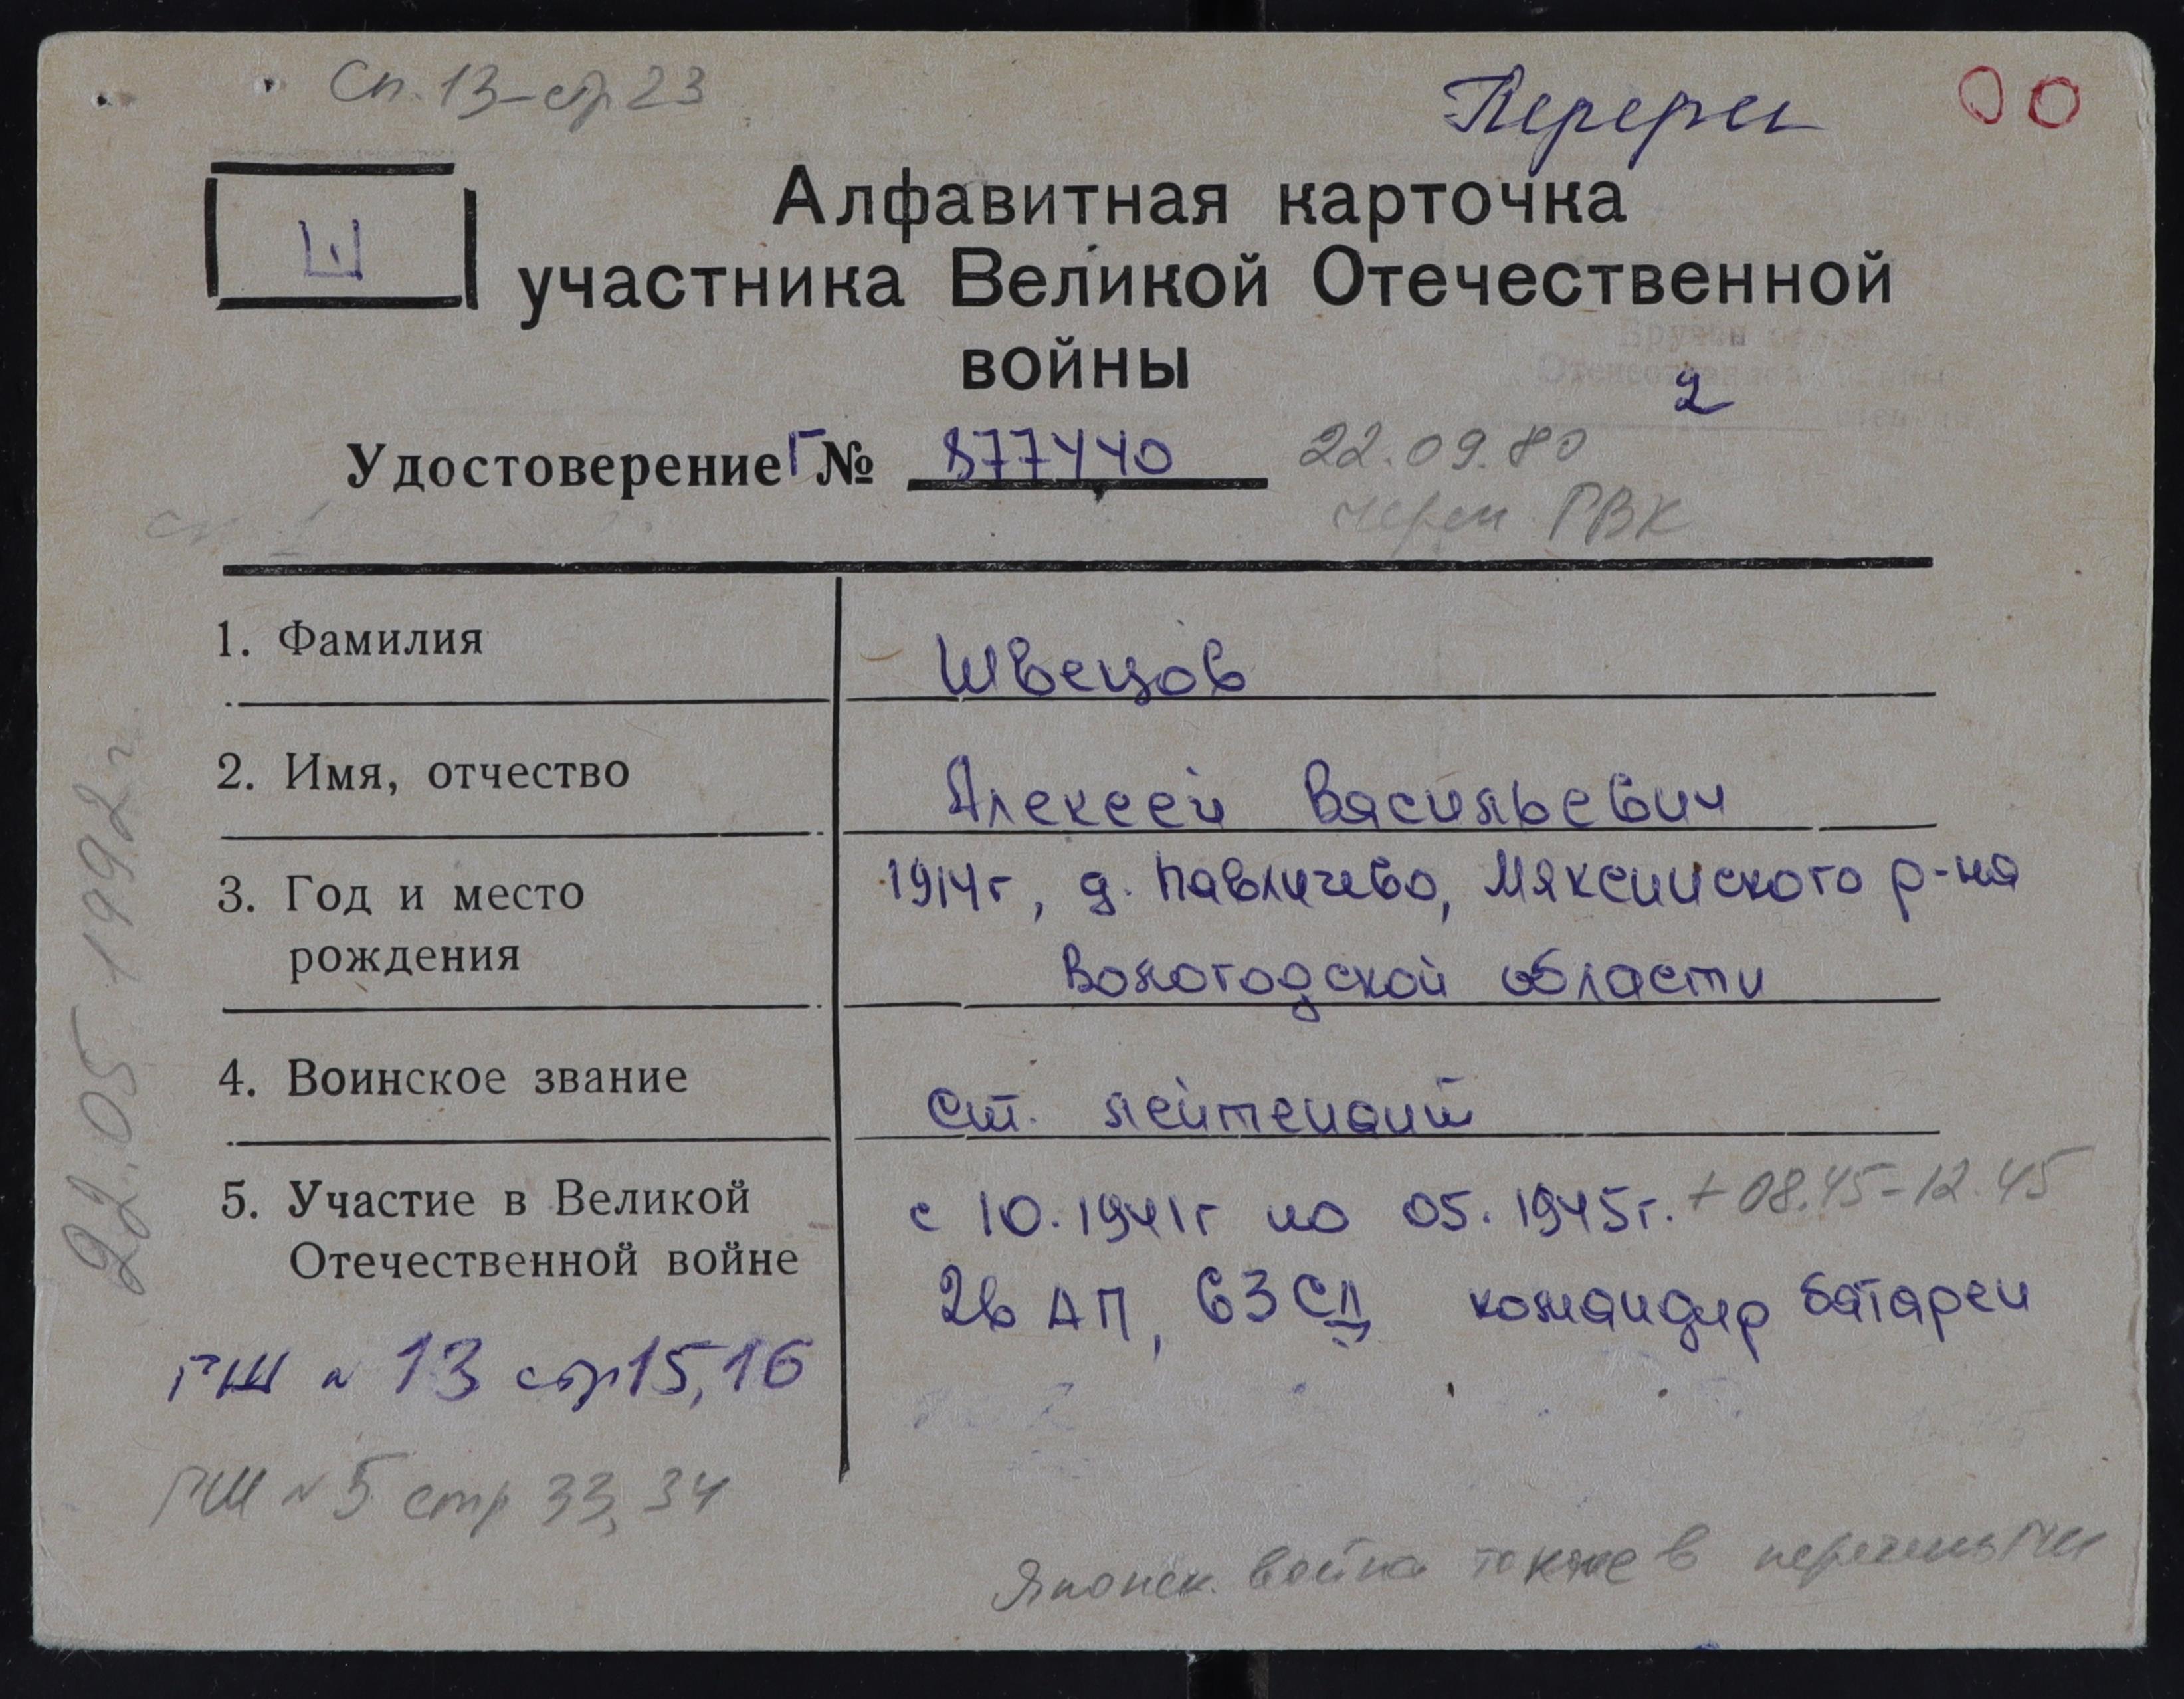 Сп. 13-стр 23
Перерег
ОО
Ш
Алфавитная карточка
участника Великой Отечественной
войны
2
Удостоверение Г № 877440 22.09.80
через РВК
1. Фамилия Швецов
2. Имя, отчество Алексей Васильевич
3. Год и место рождения 1914г, д. Павличево, Мяксинского р-на
Вологодской области
4. Воинское звание ст. лейтенант
5. Участие в Великой Отечественной войне с 10.1941г по 05.1945г. + 08.45-12.45
26 АП, 63 СД командир батареи
ГШ № 13 стр 15,16
ГШ № 5 стр 33, 34
Японск. война также в перечень ГШ
22.05 1992 г.